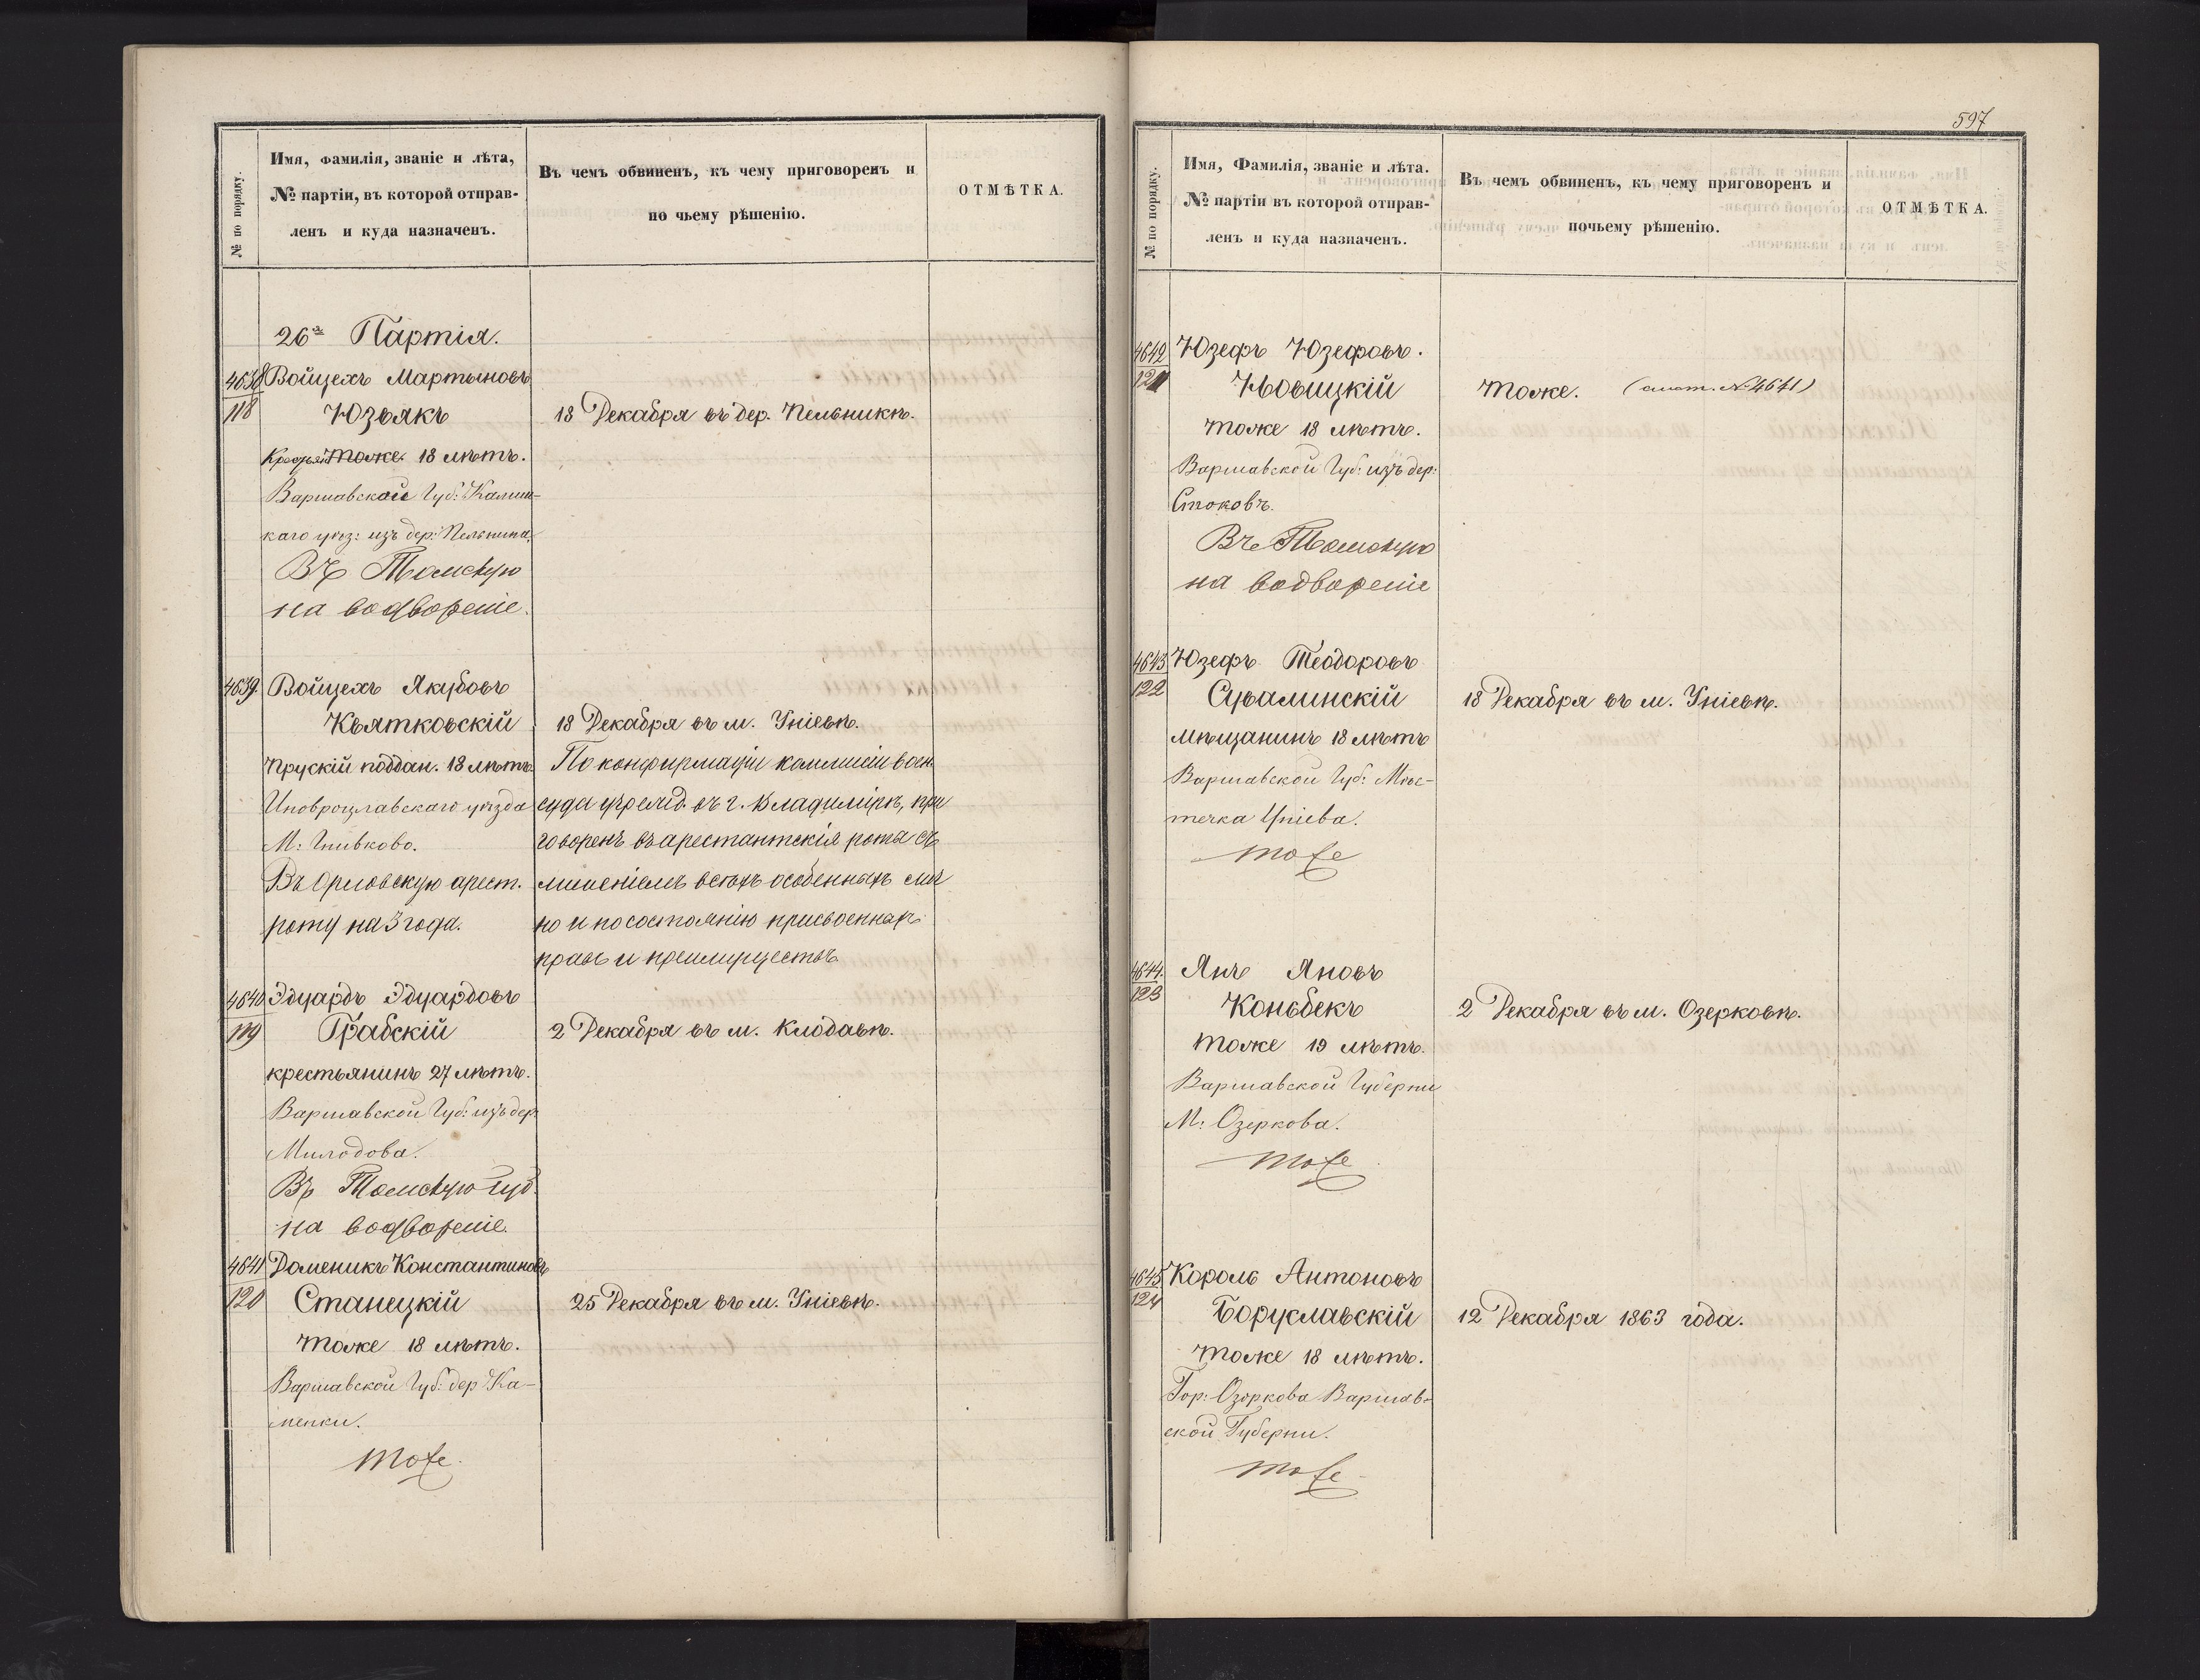 № по порядку.
Имя, фамилія, званіе и лѣта,
№ партіи, въ которой отправ-
ленъ и куда назначенъ.
Въ чемъ обвиненъ, къ чему приговоренъ и
по чьему рѣшенію.
ОТМѢТКА.
26я Партія.
4638
118
Войцехъ Мартыновъ
Юзьякъ
13 Декабря въ дер. Пельникѣ.
Тоже 18 лѣтъ.
Варшавской Губ: Калиш-
каго уѣз: изъ дер:
Въ Томскую
на водвореніе.
4639
Войцехъ Якубовъ
Квятковскій
Прускій поддан. 18 лѣтъ
Иновроцлавскаго уѣзда
М: Гнивково.
Въ Орловскую арест.
роту на 3 года.
18 Декабря въ м. Уніевѣ.
По конфирмаціи коммисіи воен
суда учрежд. въ г. Владимірѣ, при
говоренъ въ арестантскія роты съ
лишеніемъ всѣхъ особенныхъ лич
но и по состоянію присвоенныхъ
правъ и преимуществъ
4640
119
Эдуардъ Эдуардовъ
Грабскій
2 Декабря въ м. Клодавѣ.
крестьянинъ 27 лѣтъ.
Варшавской Губ: изъ дер
Милодова.
Въ Томскую Губ.
на водвореніе.
4641
120
Доменикъ Константиновъ
Станецкій
25 Декабря въ м. Уніевѣ.
Тоже 18 лѣтъ.
Варшавской Губ: дер Ка-
менки.
Тоже.
597
№ по порядку.
Имя, Фамилія, званіе и лѣта.
№ партіи въ которой отправ-
ленъ и куда назначенъ.
Въ чемъ обвиненъ, къ чему приговоренъ и
почьему рѣшенію.
ОТМѢТКА.
4642
121
Юзефъ Юзефовъ.
Новицкій
Тоже. (смот. № 4641)
тоже 18 лѣтъ.
Варшавской Губ: изъ дер:
Стоковъ.
Въ Томскую
на водвореніе
4643
122
Юзефъ Теодоровъ
Сувалинскій
18 Декабря въ м. Уніевѣ.
мѣщанинъ 18 лѣтъ
Варшавской Губ: Мѣс-
течка Уніева.
тоже
4644.
123
Янъ Яновъ
Коньбекъ
2 Декабря въ м. Озерковѣ.
тоже 19 лѣтъ.
Варшавской Губерни
М: Озеркова.
тоже
4645
124
Король Антоновъ
Боруславскій
12 Декабря 1863 года.
тоже 18 лѣтъ.
Гор: Озоркова Варшав-
ской Губерни.
тоже